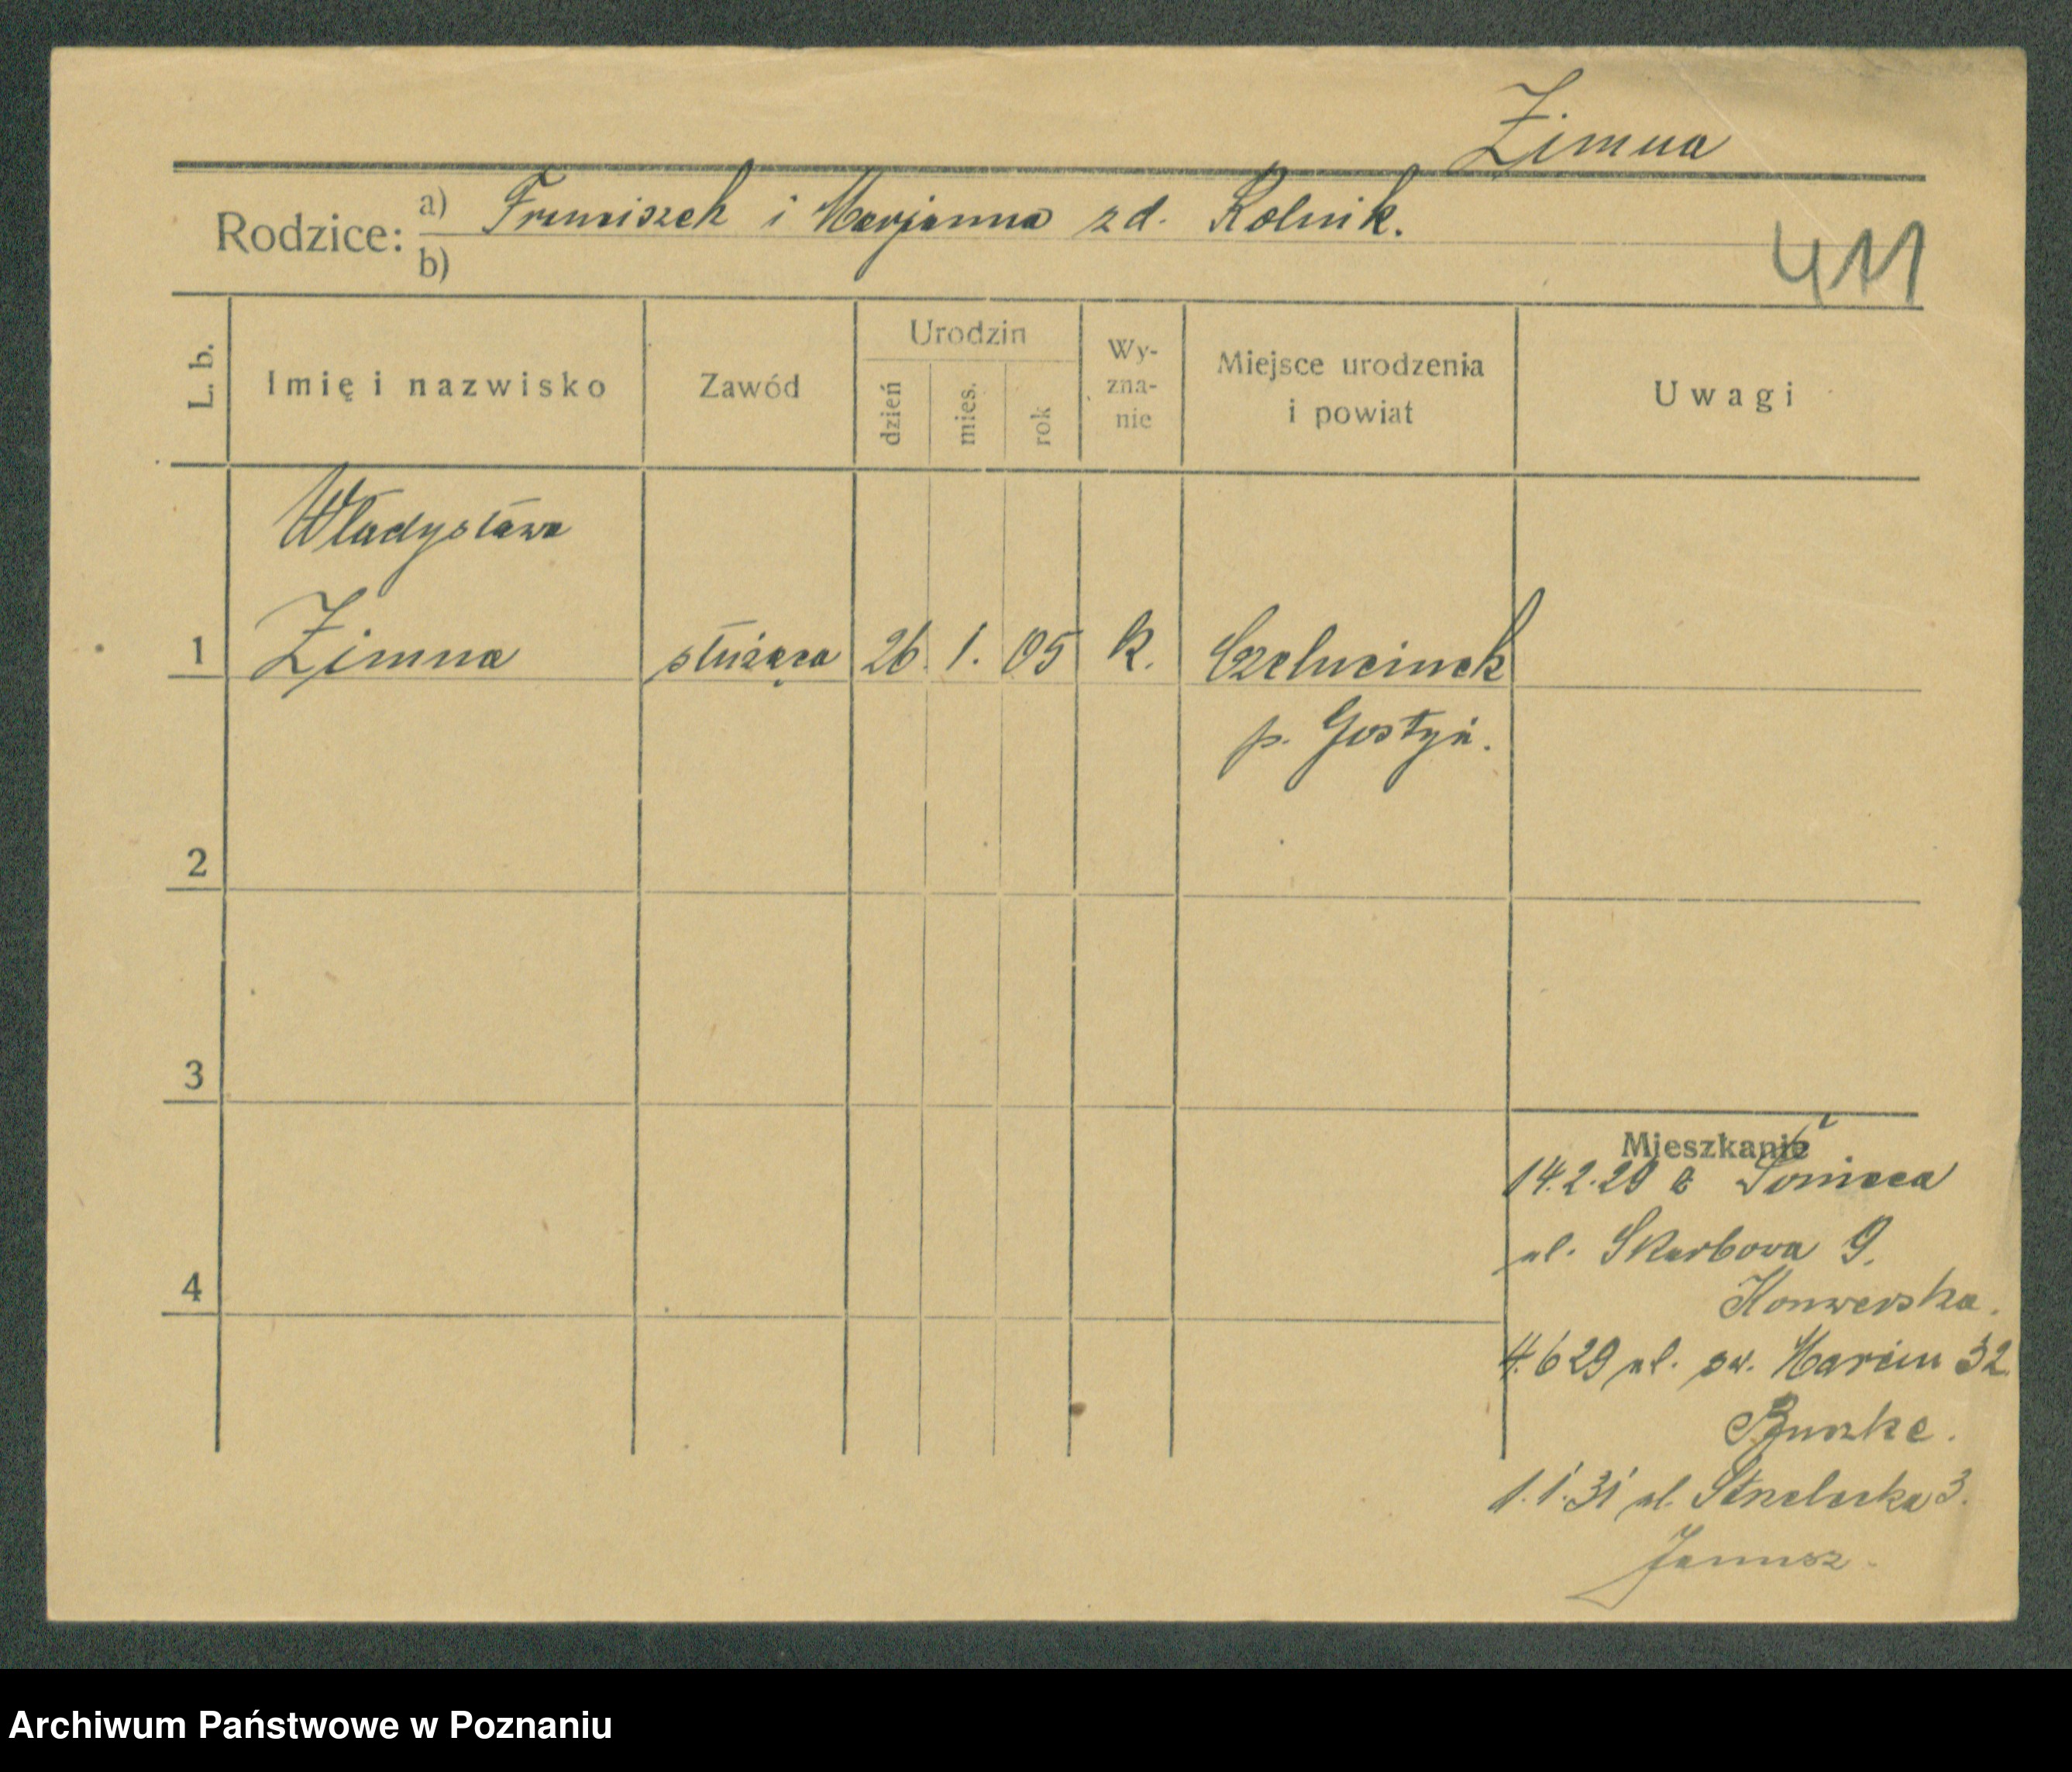 Zimna
Rodzice: a) Franciszek i Marjanna zd. Rolnik.
b)
411
L. b.
Imię i nazwisko
Zawód
Urodzin
dzień
mies.
rok
Wy-
zna-
nie
Miejsce urodzenia
i powiat
Uwagi
Władysława
1 Zimna służąca 26. 1. 05 k. Czeluscinek
p. Gostyń.
2
3
4
Mieszkanie
14.2.29 z
ul. Skarbowa 9.
4.6 29 ul. św. Marcin 32.
1.1.31 ul. Strzelecka 3.
Janusz.
Archiwum Państwowe w Poznaniu